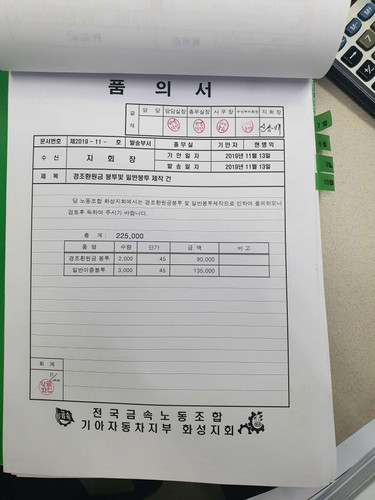 품 의 서
결 재 담 당 담당실장 총무실장 사 무 장 수석부지회장 지 회 장
문서번호 제2019 - 11 - 호 발송부서 총 무 실 기 안 자 현 병 억
수 신 지 회 장 기 안 일 자 2019년 11월 13일
발 송 일 자 2019년 11월 13일
제 목 경조환원금 봉투및 일반봉투 제작 건
당 노동조합 화성지회에서는 경조환원금봉투 및 일반봉투제작으로 인하여 품의하오니
검토후 득하여 주시기 바랍니다.
총 계 : 225,000
품 명 수량 단가 금 액 비 고
경조환원금 봉투 2,000 45 90,000
일반이중봉투 3,000 45 135,000
회 계
전국금속노동조합
기아자동차지부 화성지회